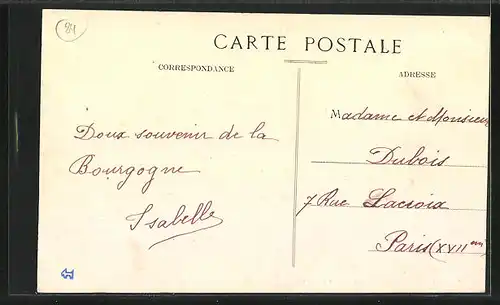 84
CARTE POSTALE
CORRESPONDANCE
ADRESSE
Doux souvenir de la
Bourgogne
Isabelle
Madame et Monsieur
Dubois
7 Rue Lacroix
Paris (XVII em)